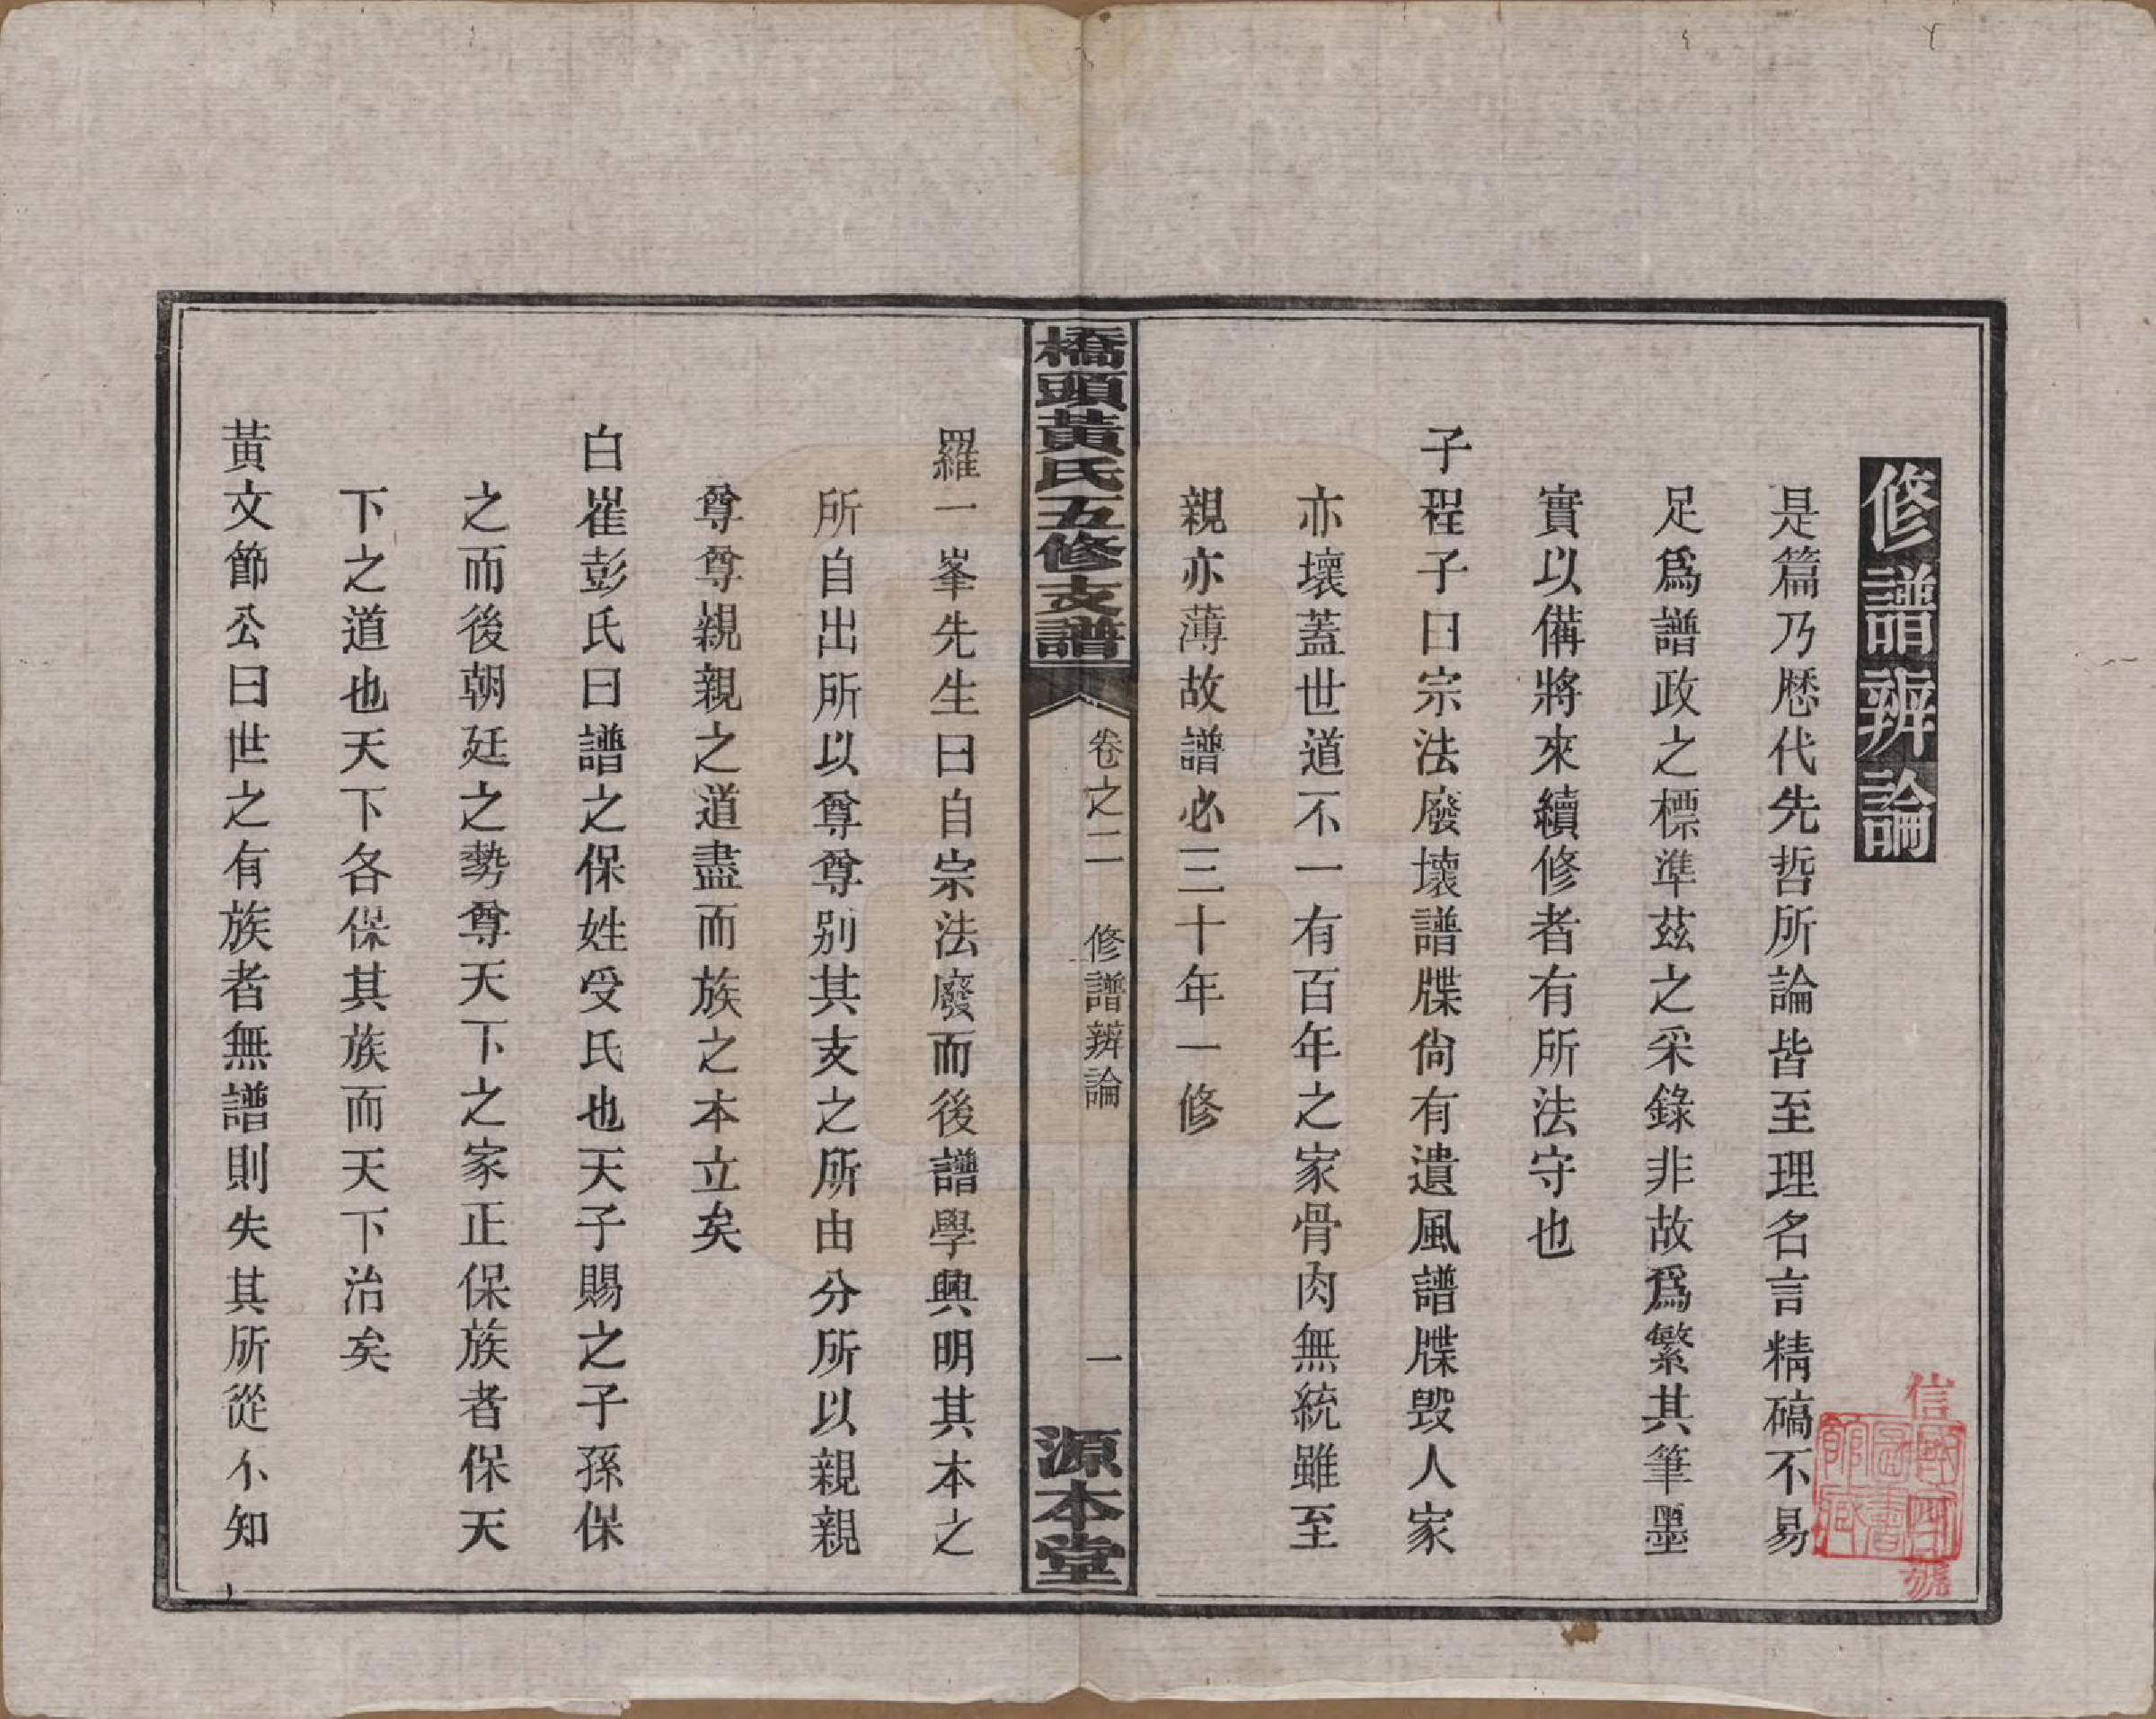 修譜辨論
是篇乃歷代先哲所論皆至理名言精碻不易
足爲譜政之標準茲之采錄非故爲繁其筆墨
實以備將來續修者有所法守也
子程子曰宗法廢壞譜牒尙有遺風譜牒毁人家
亦壞蓋世道不一有百年之家骨肉無統雖至
親亦薄故譜必三十年一修
橋頭黃氏五修支譜
卷之二
修譜辨論
一
源本堂
羅一峯先生曰自宗法廢而後譜學興明其本之
所自出所以尊尊别其支之所由分所以親親
尊尊親親之道盡而族之本立矣
白崔彭氏曰譜之保姓受氏也天子賜之子孫保
之而後朝廷之勢尊天下之家正保族者保天
下之道也天下各保其族而天下治矣
黃文節公曰世之有族者無譜則失其所從不知
信
國家圖書館藏
號